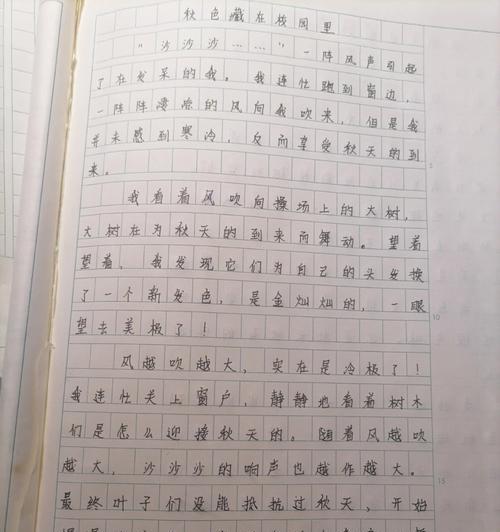 秋色藏在校园里
“沙沙沙……”一阵风声引起
了在发呆的我。我连忙跑到窗边，
一阵阵凄凉的风向我吹来，但是我
并未感到寒冷，反而享受秋天的到
来。
我看着风吹向操场上的大树，
大树在为秋天的到来而舞动。望着
望着，我发现它们为自己的头发换
了一个新发色，是金灿灿的，一眼
望去美极了！
风越吹越大，实在是冷极了！
我连忙关上窗户，静静地看着树木
们是怎么迎接秋天的。随着风越吹
越大，沙沙沙的响声也越作越大。
最终叶子们没能抵抗过秋天，开始
5
10
15